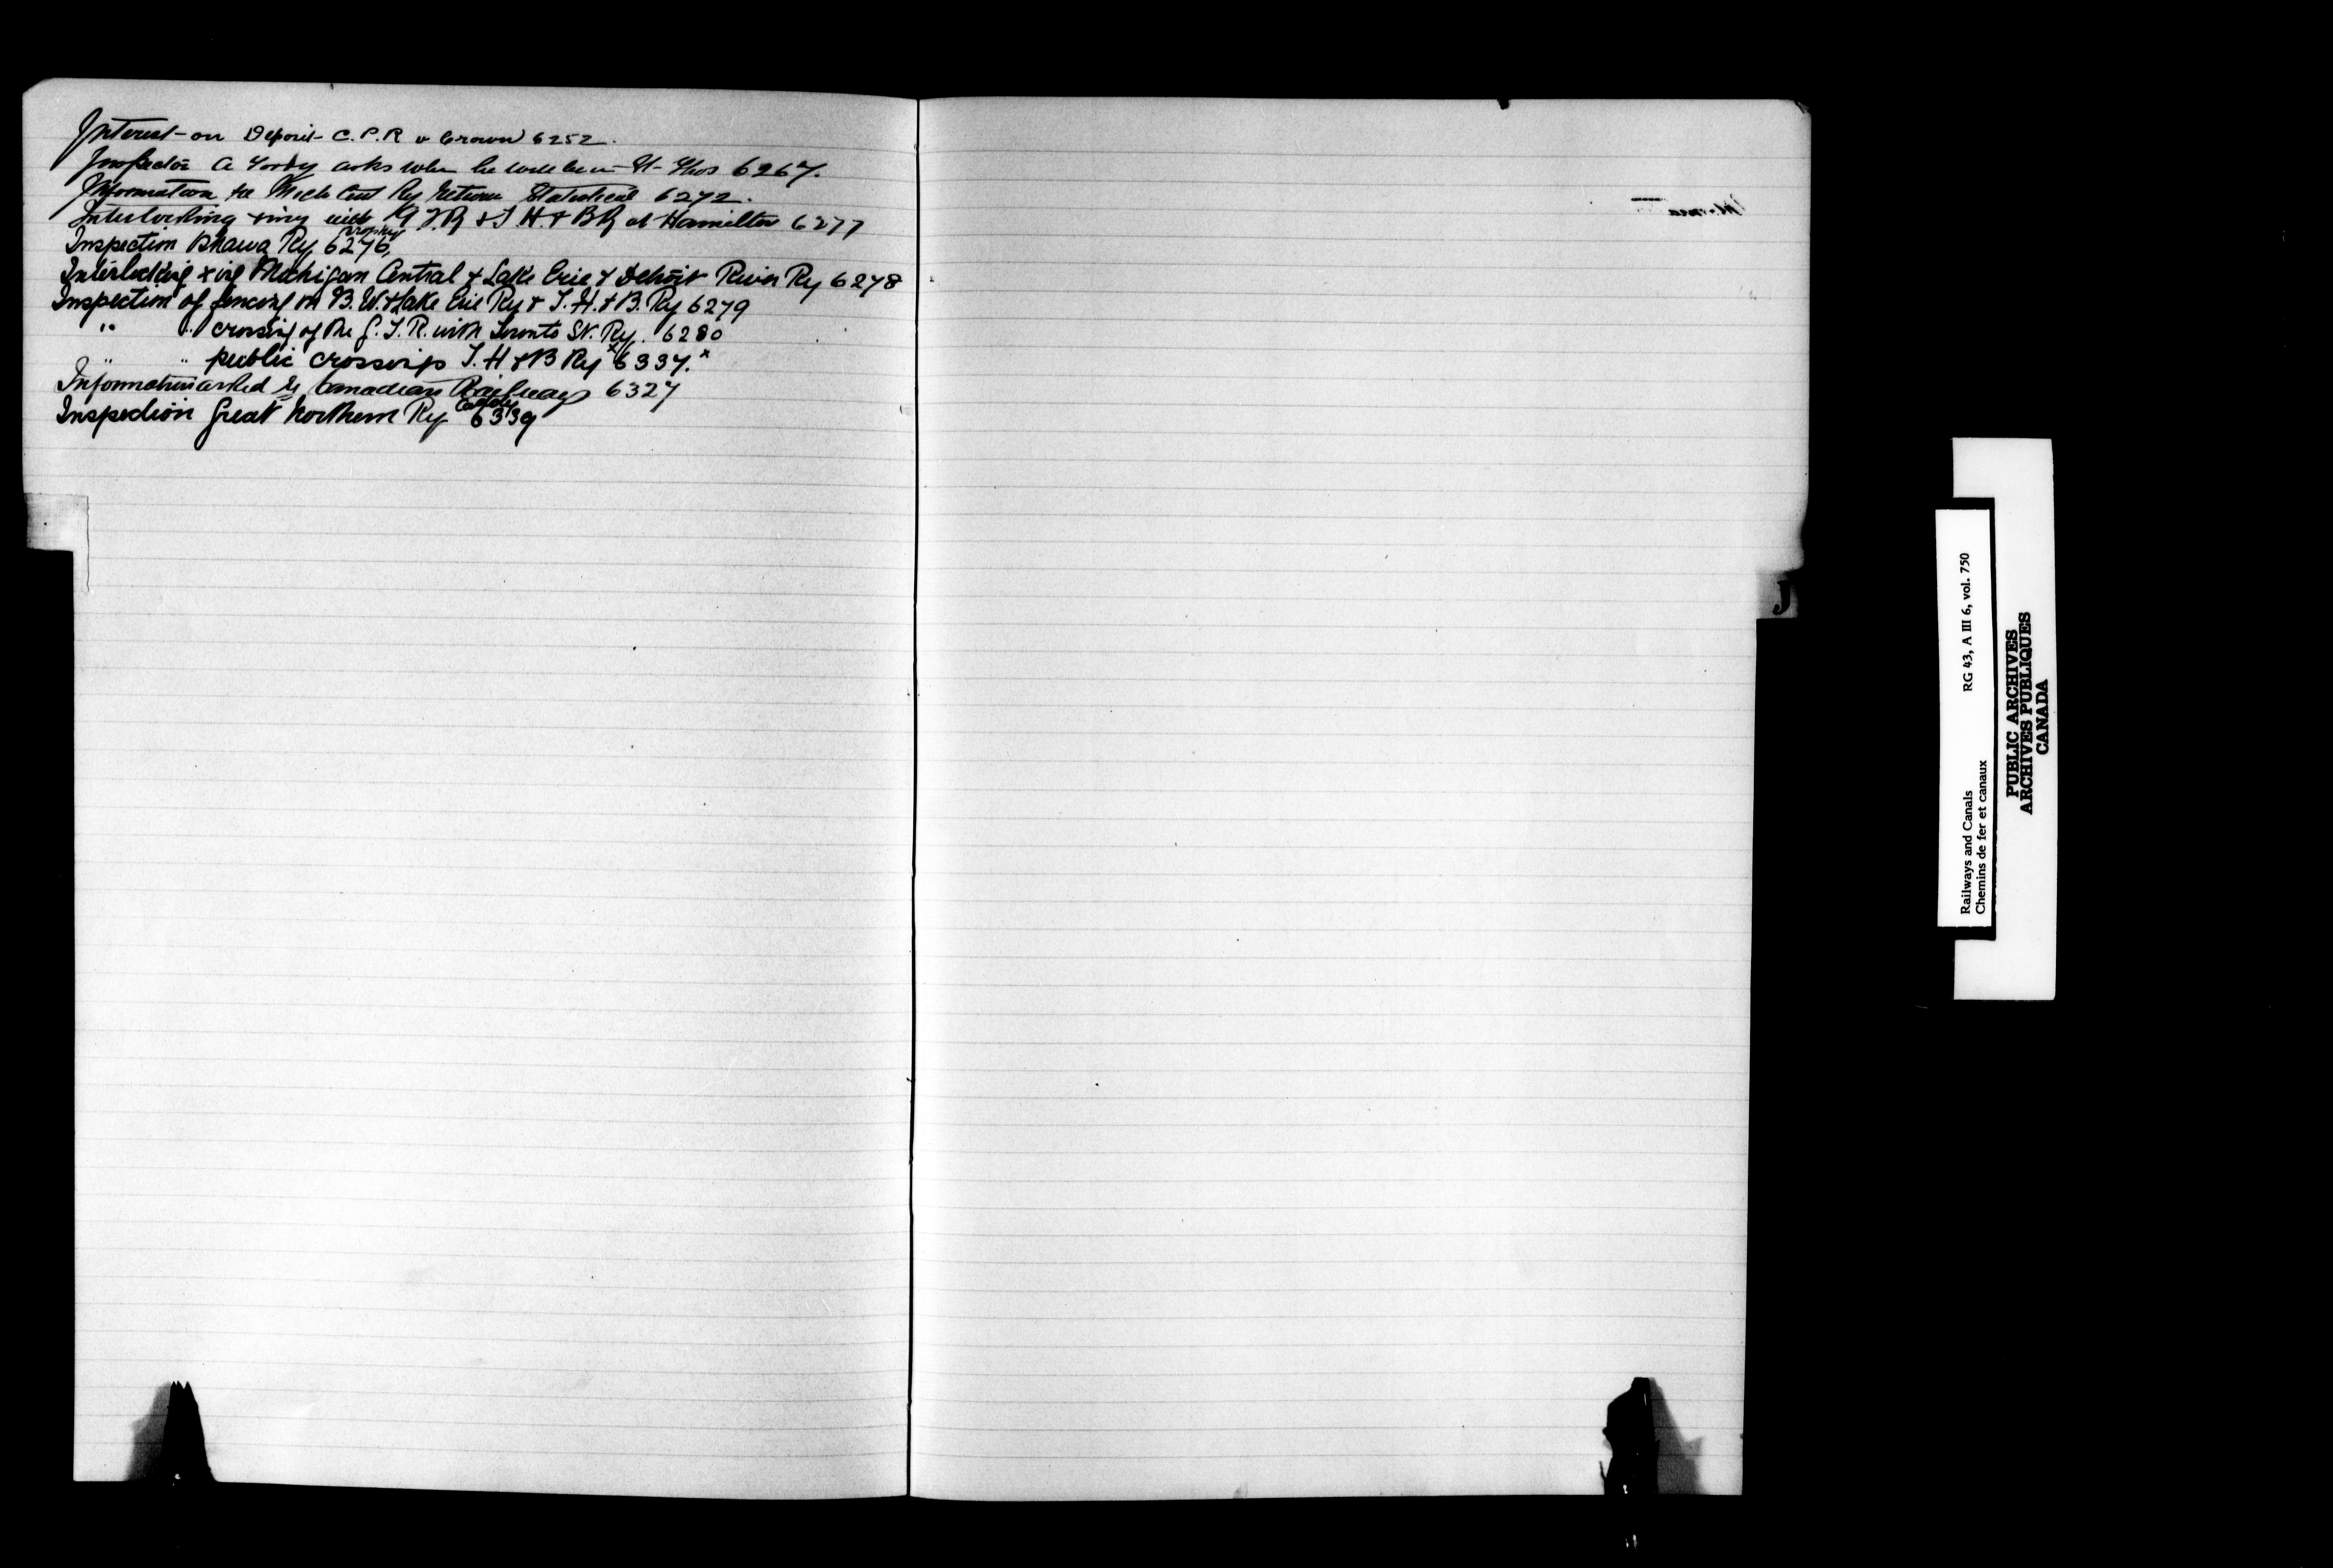 Interest on Deposit C.P.R v Crown 6252.
Inspector A asks when he will be in St Thos 6267.
Information re Mich Cent Ry Return Statistical 6272.
Interlocking xing with G.T.R & T.H. & B R at Hamilton 6277
Inspection Oshawa Ry 6276,
Interlocking xing Michigan Central & Lake Erie & Detroit River Ry 6278
Inspection of fencing on B. W. & Lake Erie Ry & T. H. & B. Ry 6279
" " crossing of the G. T. R. with Toronto St. Ry. 6280
" " public crossings T. H & B Ry x 6337. x
Information asked re Canadian Railways 6327
Inspection Great Northern Ry 6339
J
Railways and Canals RG 43, A III 6, vol. 750
Chemins de fer et canaux
PUBLIC ARCHIVES
ARCHIVES PUBLIQUES
CANADA